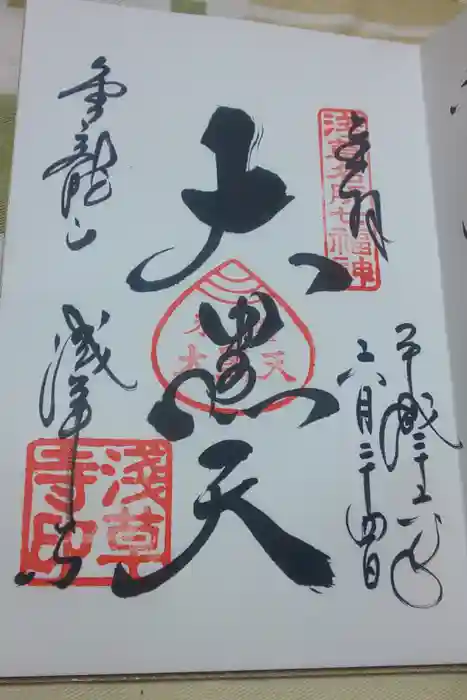 奉拝
浅草名所七福神
平成二十五年
六月二十四日
大黒天
金龍山
浅草寺
淺草
寺印